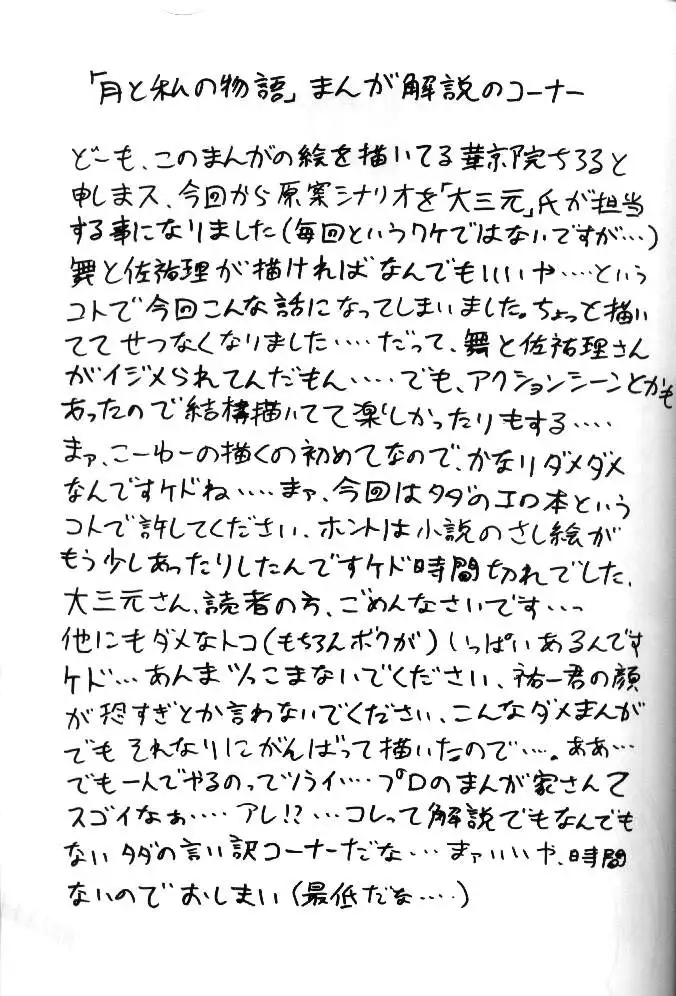 「月と私の物語」まんが解説のコーナー
どーも、このまんがの絵を描いてる華京院ちろると
申しまス、今回から原案シナリオを「大三元」氏が担当
する事になりました(毎回というワケではないですが…)
舞と佐祐理が描ければなんでもいいや……という
コトで今回こんな話になってしまいました。ちょっと描い
ててせつなくなりました……だって、舞と佐祐理さん
がイジメられてんだもん……でも、アクションシーンとかも
あったので結構描いてて楽しかったりもする……
まァ、こーゆーの描くの初めてなので、かなりダメダメ
なんですケドね……まァ、今回はタダのエロ本という
コトで許してください、ホントは小説のさし絵が
もう少しあったりしたんですケド時間切れでした、
大三元さん、読者の方、ごめんなさいです…っ
他にもダメなトコ(もちろんボクが)いっぱいあるんです
ケド…あんまツっこまないでください、祐一君の顔
が恐すぎとか言わないでください、こんなダメまんが
でもそれなりにがんばって描いたので…。ああ…
でも一人でやるのってツライ…プロのまんが家さんて
スゴイなぁ……アレ!?…コレって解説でもなんでも
ないタダの言い訳コーナーだな…まァいいや、時間
ないのでおしまい(最低だな……)